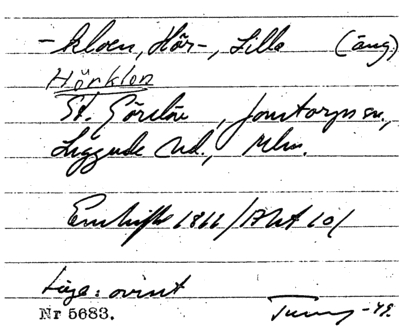 -kloen, Hör-, Lilla (äng)
Hörklon
St. Görslöv, Jonstorps sn.,
Luggude hd., Mlm.
Enskifte 1811 /Akt 10/
Läge: ovisst
Nr 5683. -49.